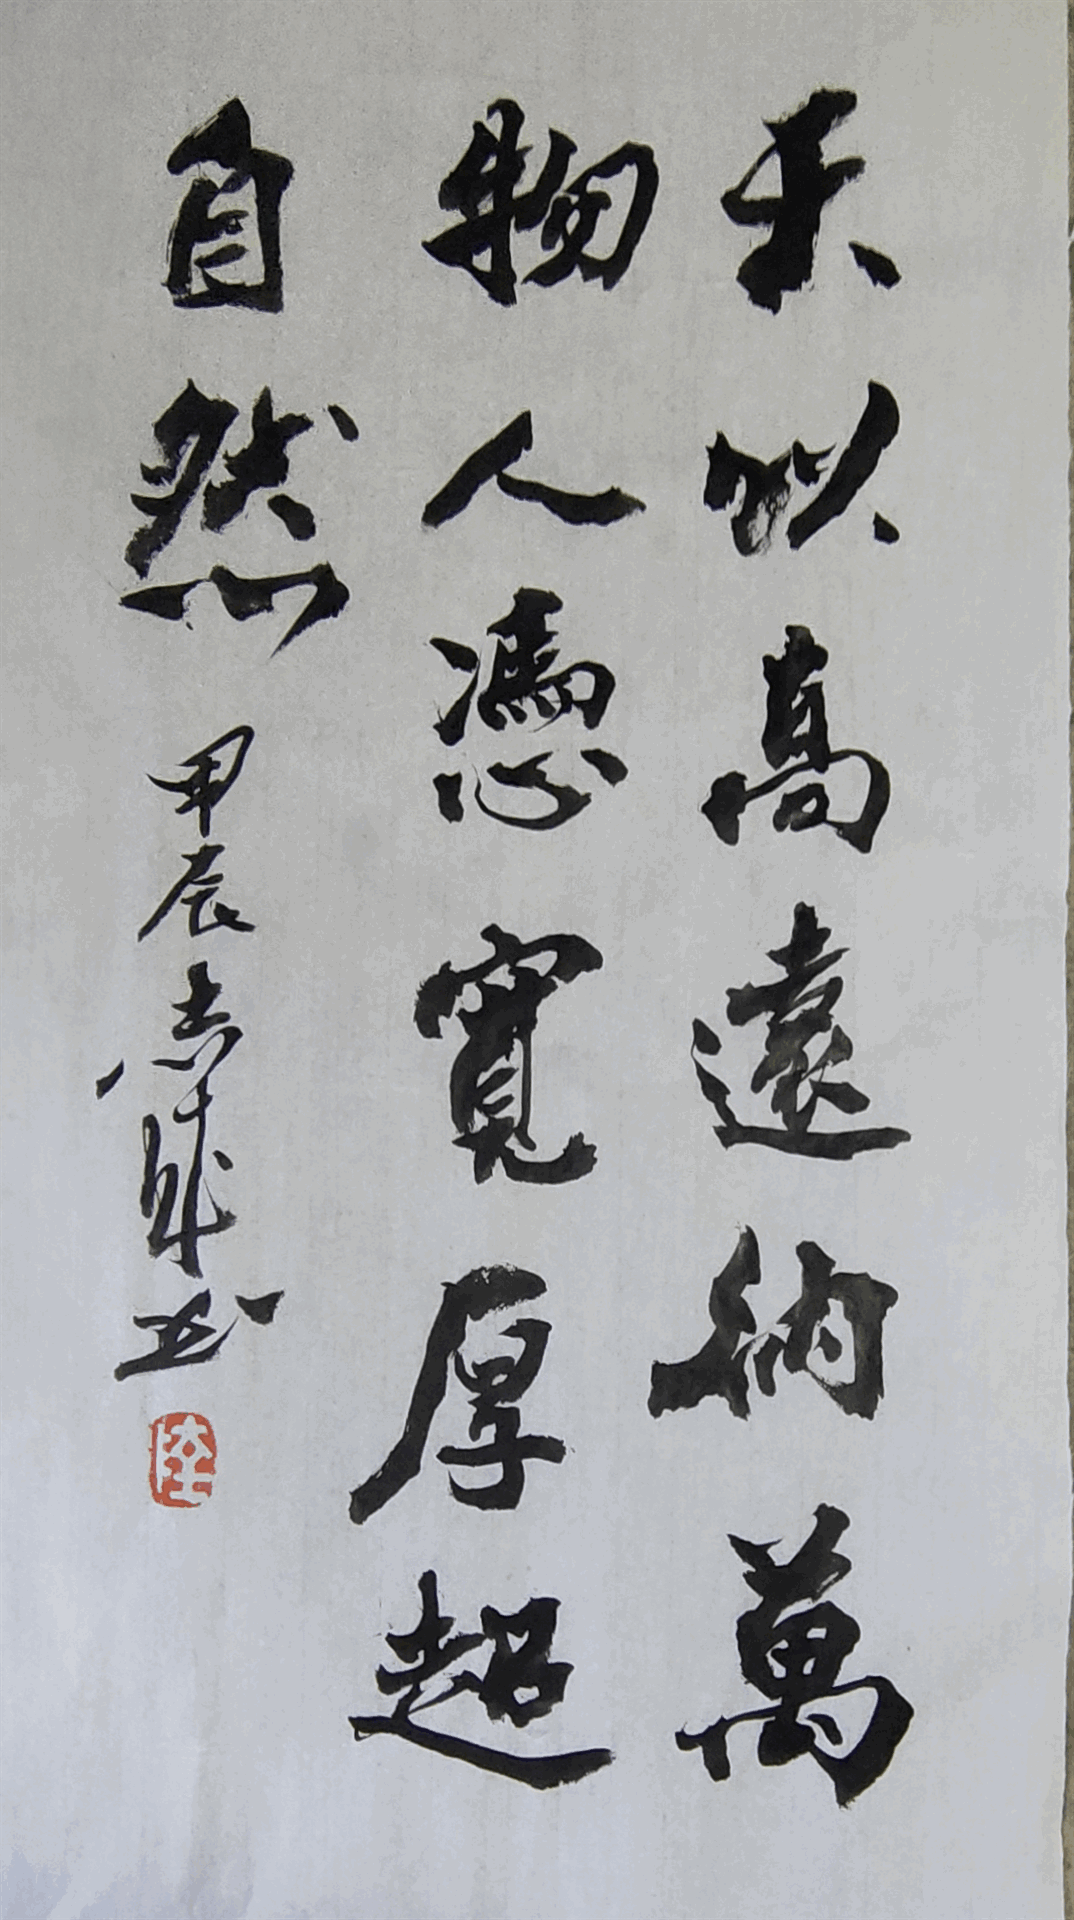 天以高遠納萬
物人憑寬厚超
自然
甲辰志成书
陸